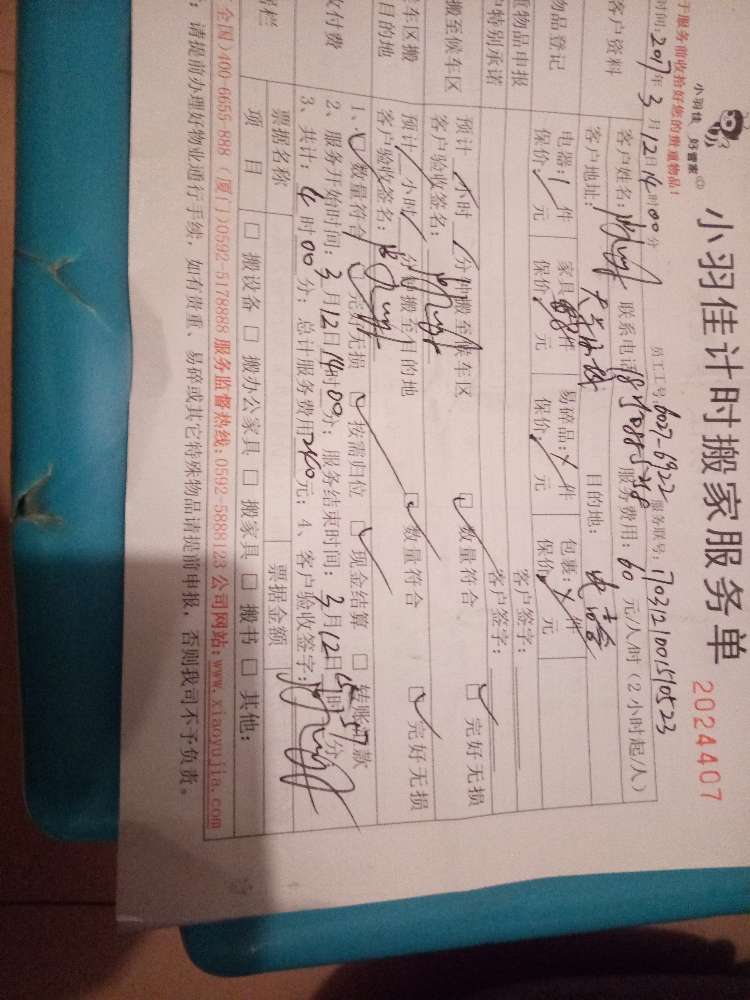 于服务前收拾好您的贵重物品!
小羽佳 好管家
小羽佳计时搬家服务单
2024407
时间: 2017年 3月12日14时00分 员工工号: 6027-6922 服务联号: 1703121001510523
客户资料
客户姓名: 联系电话 服务费用: 60 元/人/时 (2小时起/人)
客户地址: 目的地:
物品登记
电器: 1 件 家具 件 易碎品: × 件 包裹: × 件
保价: / 元 保价: / 元 保价: / 元 保价: / 元
重物品申报 客户签字:
户特别承诺 客户签字:
搬至候车区
预计 / 小时 / 分钟搬至候车区 ☑ 数量符合 ☑ 完好无损
客户验收签名:
车区搬
目的地
预计 / 小时 / 分钟搬至目的地 ☑ 数量符合 ☑ 完好无损
客户验收签名:
收付费
1、☑ 数量符合 ☑ 完好无损 ☑ 按需归位 ☑ 现金结算 □ 转账付款
2、服务开始时间: 3月12日14时00分; 服务结束时间: 3月12日 时 分
3、共计: 4 时 00 分; 总计服务费用 240 元; 4、客户验收签字:
票据名称 票据金额
项 目 □ 搬设备 □ 搬办公家具 □ 搬家具 □ 搬书 □ 其他:
全国)400-6655-888 (厦门)0592-5178888 服务监督热线: 0592-5888123 公司网站: www.xiaoyujia.com
: 请提前办理好物业通行手续, 如有贵重、易碎或其它特殊物品请提前申报, 否则我司不予负责。